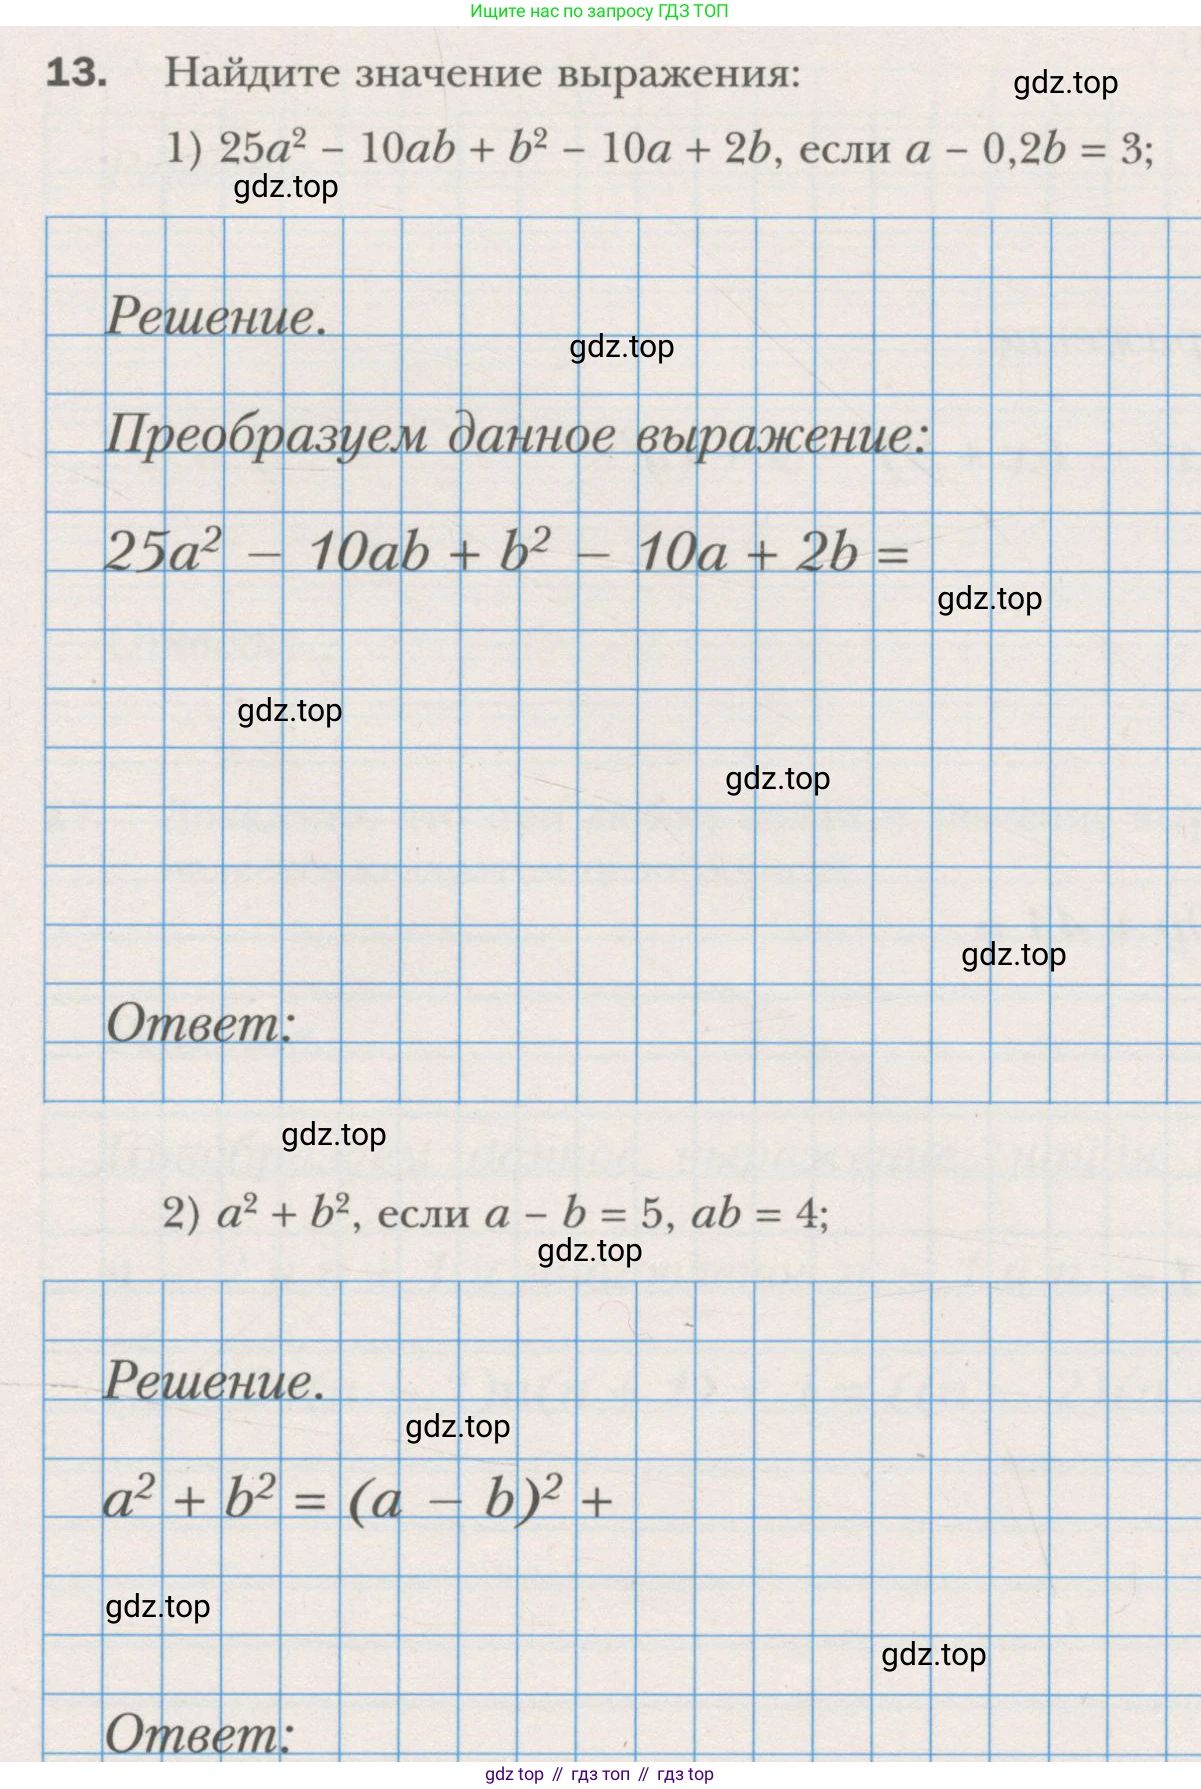 Ищите нас по запросу ГДЗ ТОП
13. Найдите значение выражения:
gdz.top
1) 25a² − 10ab + b² − 10a + 2b, если a − 0,2b = 3;
gdz.top
Решение.
gdz.top
Преобразуем данное выражение:
25a² − 10ab + b² − 10a + 2b =
gdz.top
gdz.top
gdz.top
gdz.top
Ответ:
gdz.top
2) a² + b², если a − b = 5, ab = 4;
gdz.top
Решение.
gdz.top
a² + b² = (a − b)² +
gdz.top
gdz.top
Ответ:
gdz top // гдз топ // гдз top